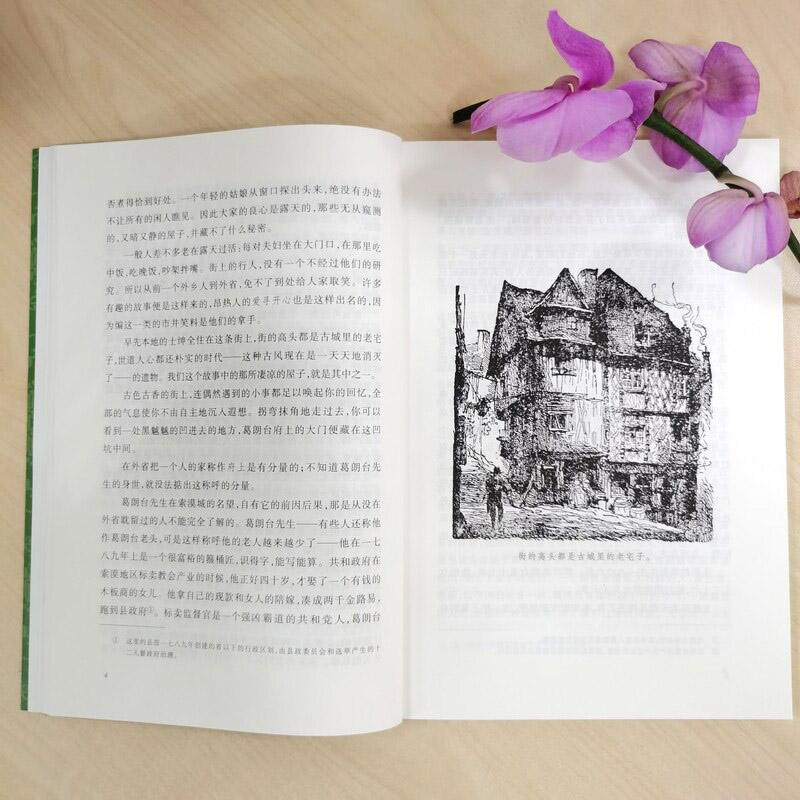 否煮得恰到好处。一个年轻的姑娘从窗口探出头来,绝没有办法
不让所有的闲人瞧见。因此大家的良心是露天的,那些无从窥测
的,又暗又静的屋子,并藏不了什么秘密。
一般人差不多老在露天过活:每对夫妇坐在大门口,在那里吃
中饭,吃晚饭,吵架拌嘴。街上的行人,没有一个不经过他们的研
究。所以从前一个外乡人到外省,免不了到处给人家取笑。许多
有趣的故事便是这样来的,昂热人的爱寻开心也是这样出名的,因
为编这一类的市井笑料是他们的拿手。
早先本地的士绅全住在这条街上,街的高头都是古城里的老宅
子,世道人心都还朴实的时代——这种古风现在是一天天地消灭
了——的遗物。我们这个故事中的那所凄凉的屋子,就是其中之一。
古色古香的街上,连偶然遇到的小事都足以唤起你的回忆,全
部的气息使你不由自主地沉入遐想。拐弯抹角地走过去,你可以
看到一处黑魆魆的凹进去的地方,葛朗台府上的大门便藏在这凹
坑中间。
在外省把一个人的家称作府上是有分量的;不知道葛朗台先
生的身世,就没法掂出这称呼的分量。
葛朗台先生在索漠城的名望,自有它的前因后果,那是从没在
外省耽留过的人不能完全了解的。葛朗台先生——有些人还称他
作葛朗台老头,可是这样称呼他的老人越来越少了——他在一七
八九年上是一个很富裕的箍桶匠,识得字,能写能算。共和政府在
索漠地区标卖教会产业的时候,他正好四十岁,才娶了一个有钱的
木板商的女儿。他拿自己的现款和女人的陪嫁,凑成两千金路易,
跑到县政府①。标卖监督官是一个强凶霸道的共和党人,葛朗台
① 这里的县指一七八九年创建的省以下的行政区划,由县政委员会和选举产生的十
二人督政府治理。
4
街的高头都是古城里的老宅子。